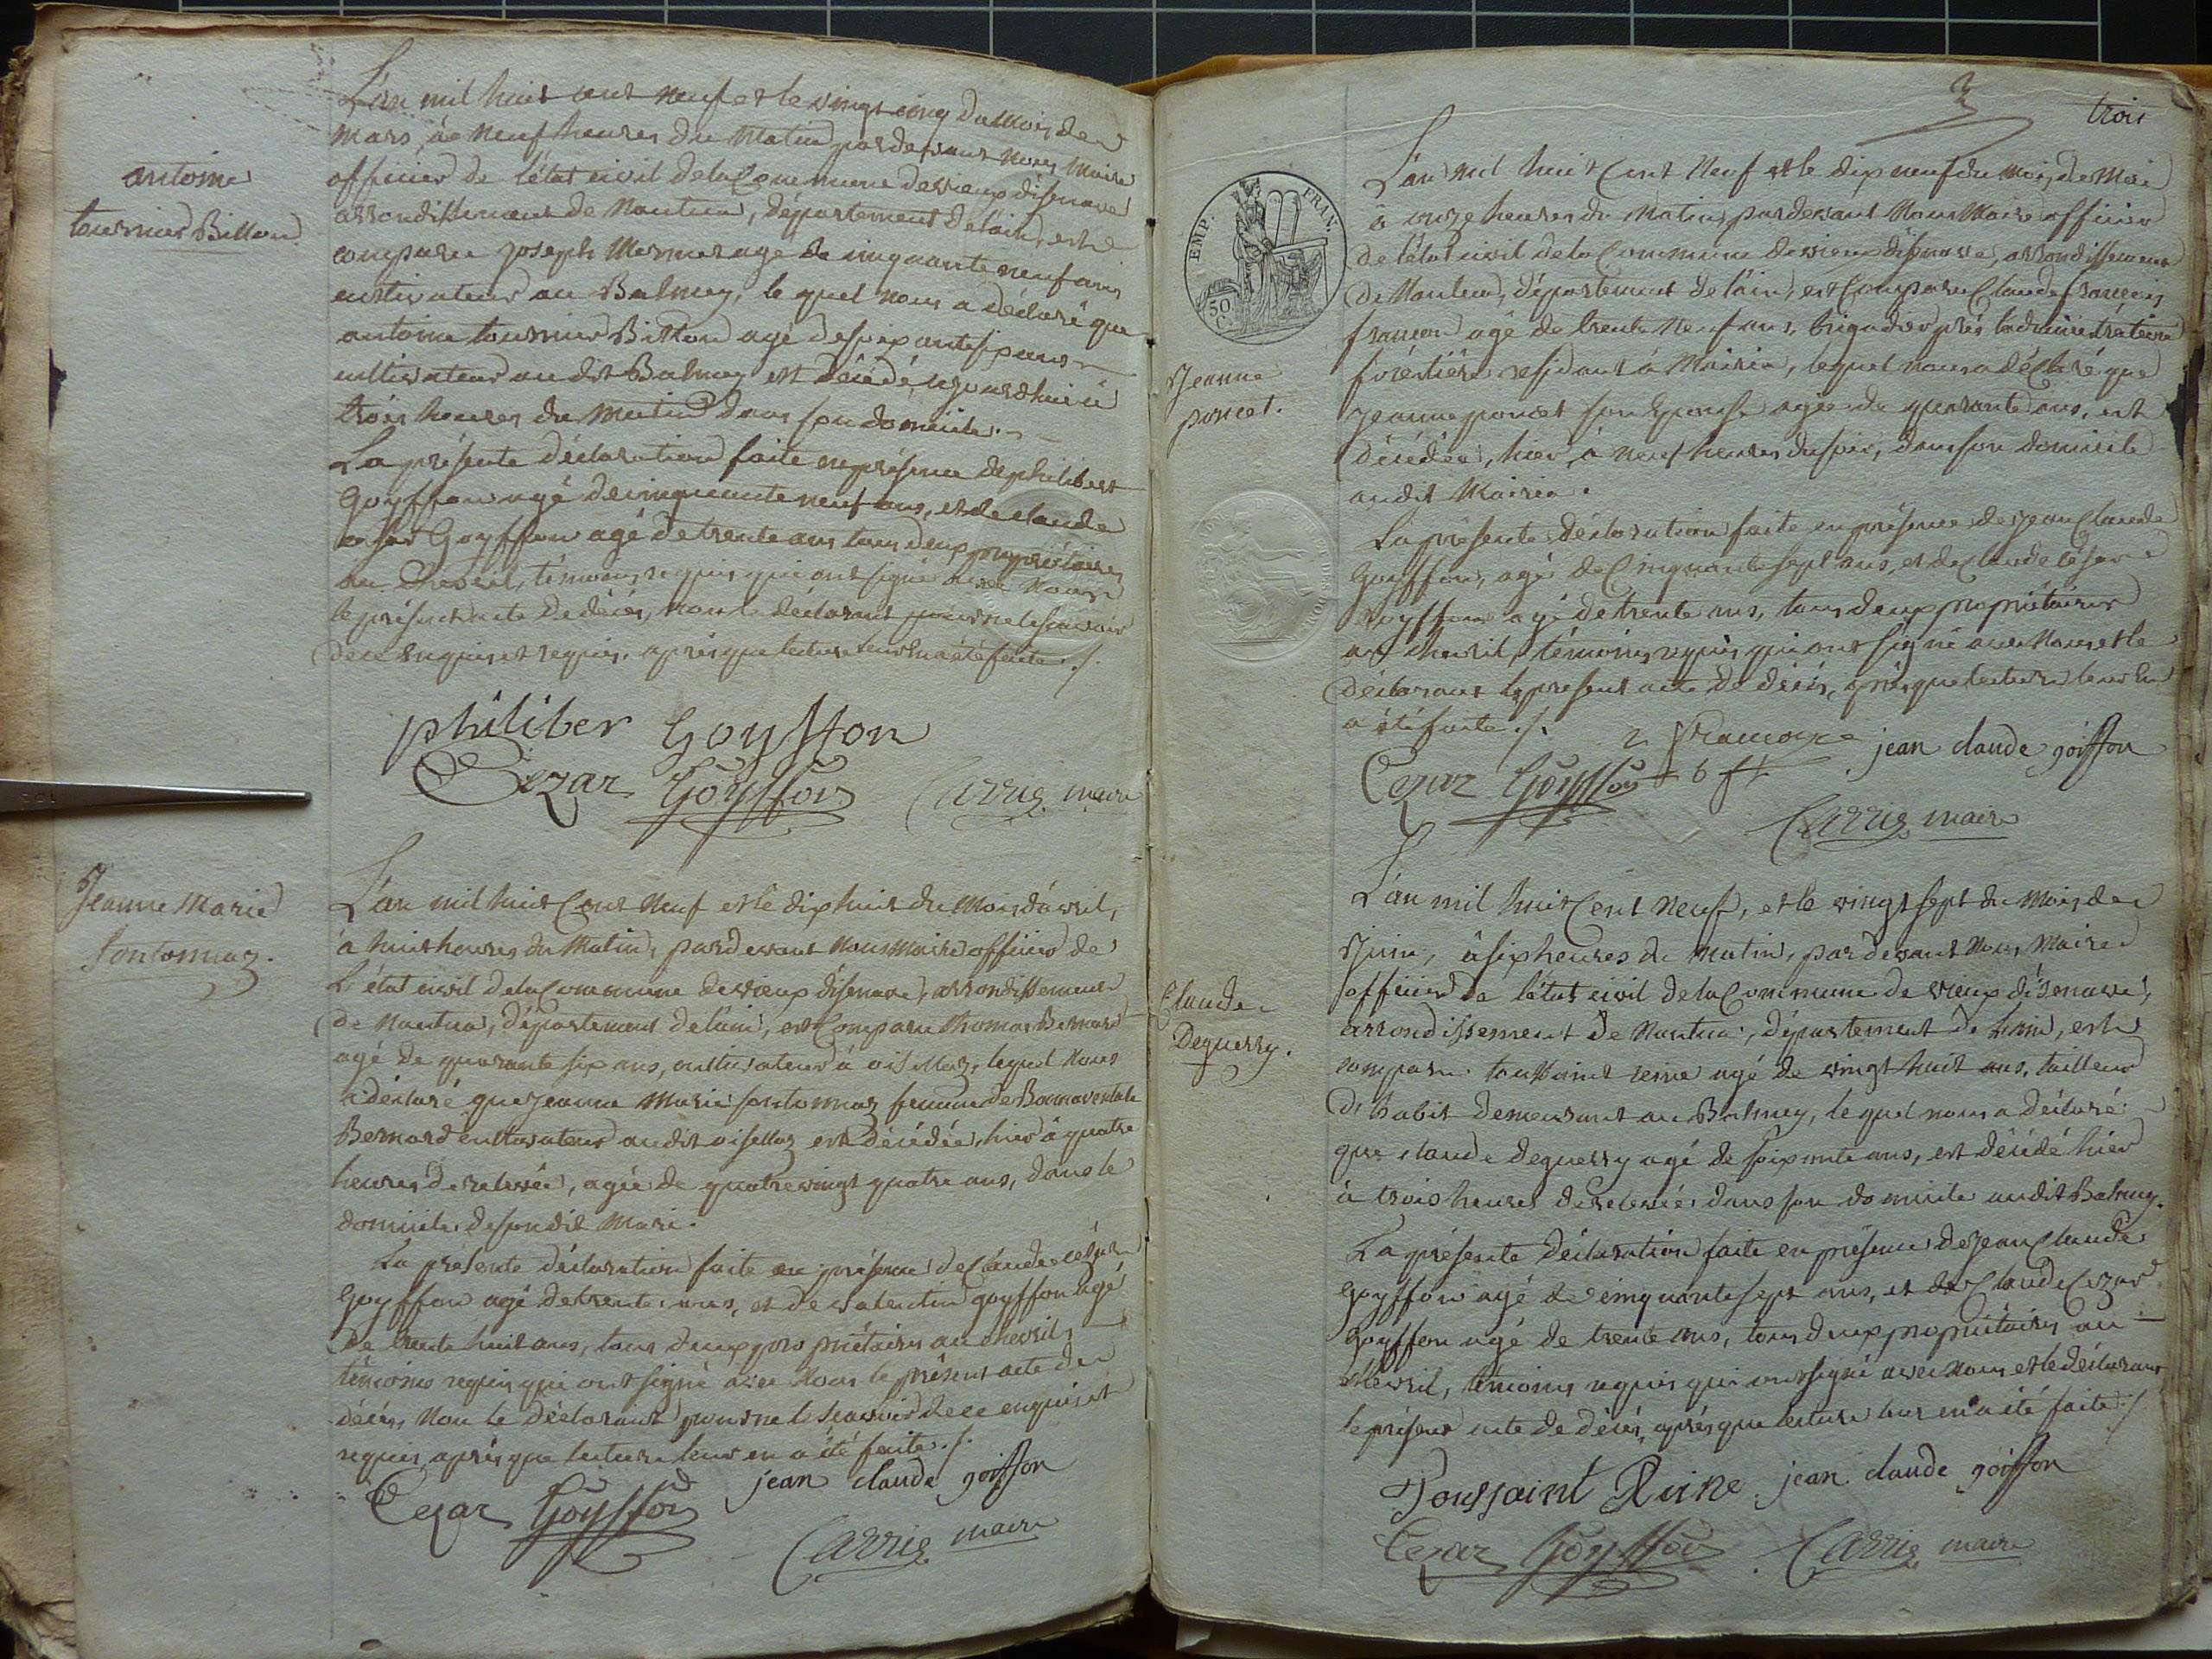 antoine
tournier Billon
L'an mil huit cent neuf et le vingt cinq du mois de
mars, à neuf heures du matin pardevant nous maire
officier de l'état civil de la Commune de vieux d'isenave
arrondissement de Nantua, département de l'ain, est
comparu joseph Mermer agé de cinquante neuf ans
cultivateur au Balmey, le quel nous a déclaré que
antoine tournier Billon agé de soixante six ans
cultivateur au dit Balmey est décédé, aujourd'hui à
trois heures du matin dans son domicile.
La présente déclaration faite en présence de philibert
Goyffon agé de cinquante neuf ans, et de claude
cesar Goyffon agé de trente ans tous deux propriétaires
au Chevril, témoins requis qui ont signé avec nous
le présent acte de décès, non le déclarant pour ne le scavoir
de ce enquis et requis, après que lecture leur en a été faite ./.
philiber Goyffon
Cezar Goyffon Carrig maire
Jeanne Marie
fontonnaz.
L'an mil huit Cent Neuf et le dix huit du Mois d'avril,
à huit heures du Matin, pardevant nous maire officier de
L'état civil de la Commune de vieux d'isenave, arrondissement
de Nantua, département de l'ain, est Comparu thomas Bernard
agé de quarante six ans, cultivateur à oisellaz, lequel Nous
a déclaré que jeanne Marie fontonnaz femme de Bonnaventure
Bernard cultivateur audit oisellaz est décédée, hier à quatre
heures de relevée, agée de quatre vingt quatre ans, dans le
domicile de son dit Mari.
La présente déclaration faite en présence de Claude cesar
Goyffon agé de trente ans, et de valentin goyffon agé
de trente huit ans, tous deux propriétaires au chevril,
témoins requis qui ont signé avec Nous le présent acte de
décès, Non le Déclarant pour ne le scavoir de ce enquis et
requis après que lecture leur en a été faite ./.
Cezar Goyffon jean claude goiffon
Carrig maire
3
trois
EMP. FRAN.
50 C.
Jeanne
poncet.
L'an mil huit Cent Neuf et le dix neuf du mois de Mai
à onze heures du Matin, pardevant Nous Maire officier
de l'état civil de la Commune de vieux d'isenave, arrondissement
de Nantua, département de l'ain, est Comparu Claude françois
françon agé de trente neuf ans, brigadier près l'administration
foréstière residant à Mairia, lequel nous a déclaré que
jeanne poncet son épouse agée de quarante ans, est
décédée, hier à neuf heures du soir, dans son domicile
audit Mairia.
La présente déclaration faite en présence de jean Claude
Goyffon, agé de Cinquante sept ans, et de Claude César
Goyffon agé de trente ans, tous deux propriétaires
au chevril, témoins requis qui ont signé avec Nous et le
déclarant le présent acte de décès, après que lecture leur en
a été faite ./.
jean claude goiffon
Cezar Goyffon
Carrig maire
Claude
Deguerry.
L'an mil huit Cent Neuf, et le vingt sept du Mois de
Juin, à six heures du Matin, pardevant Nous Maire
officier de l'état civil de la Commune de vieux d'isenave,
arrondissement de Nantua, département de l'ain, est
comparu toussaint reine agé de vingt huit ans, tailleur
d'habit demeurant au Balmey, le quel nous a déclaré
que claude deguerry agé de soixante ans, est décédé hier
à trois heures de relevée dans son domicile audit Balmey.
La présente déclaration faite en présence de jean Claude
goyffon agé de cinquante sept ans, et de Claude Cezar
Goyffon agé de trente ans, tous deux propriétaires au
chevril, témoins requis qui ont signé avec nous et le déclarant
le présent acte de décès, après que lecture leur en a été faite ./.
Toussaint Reine jean claude goiffon
Cezar Goyffon Carrig maire